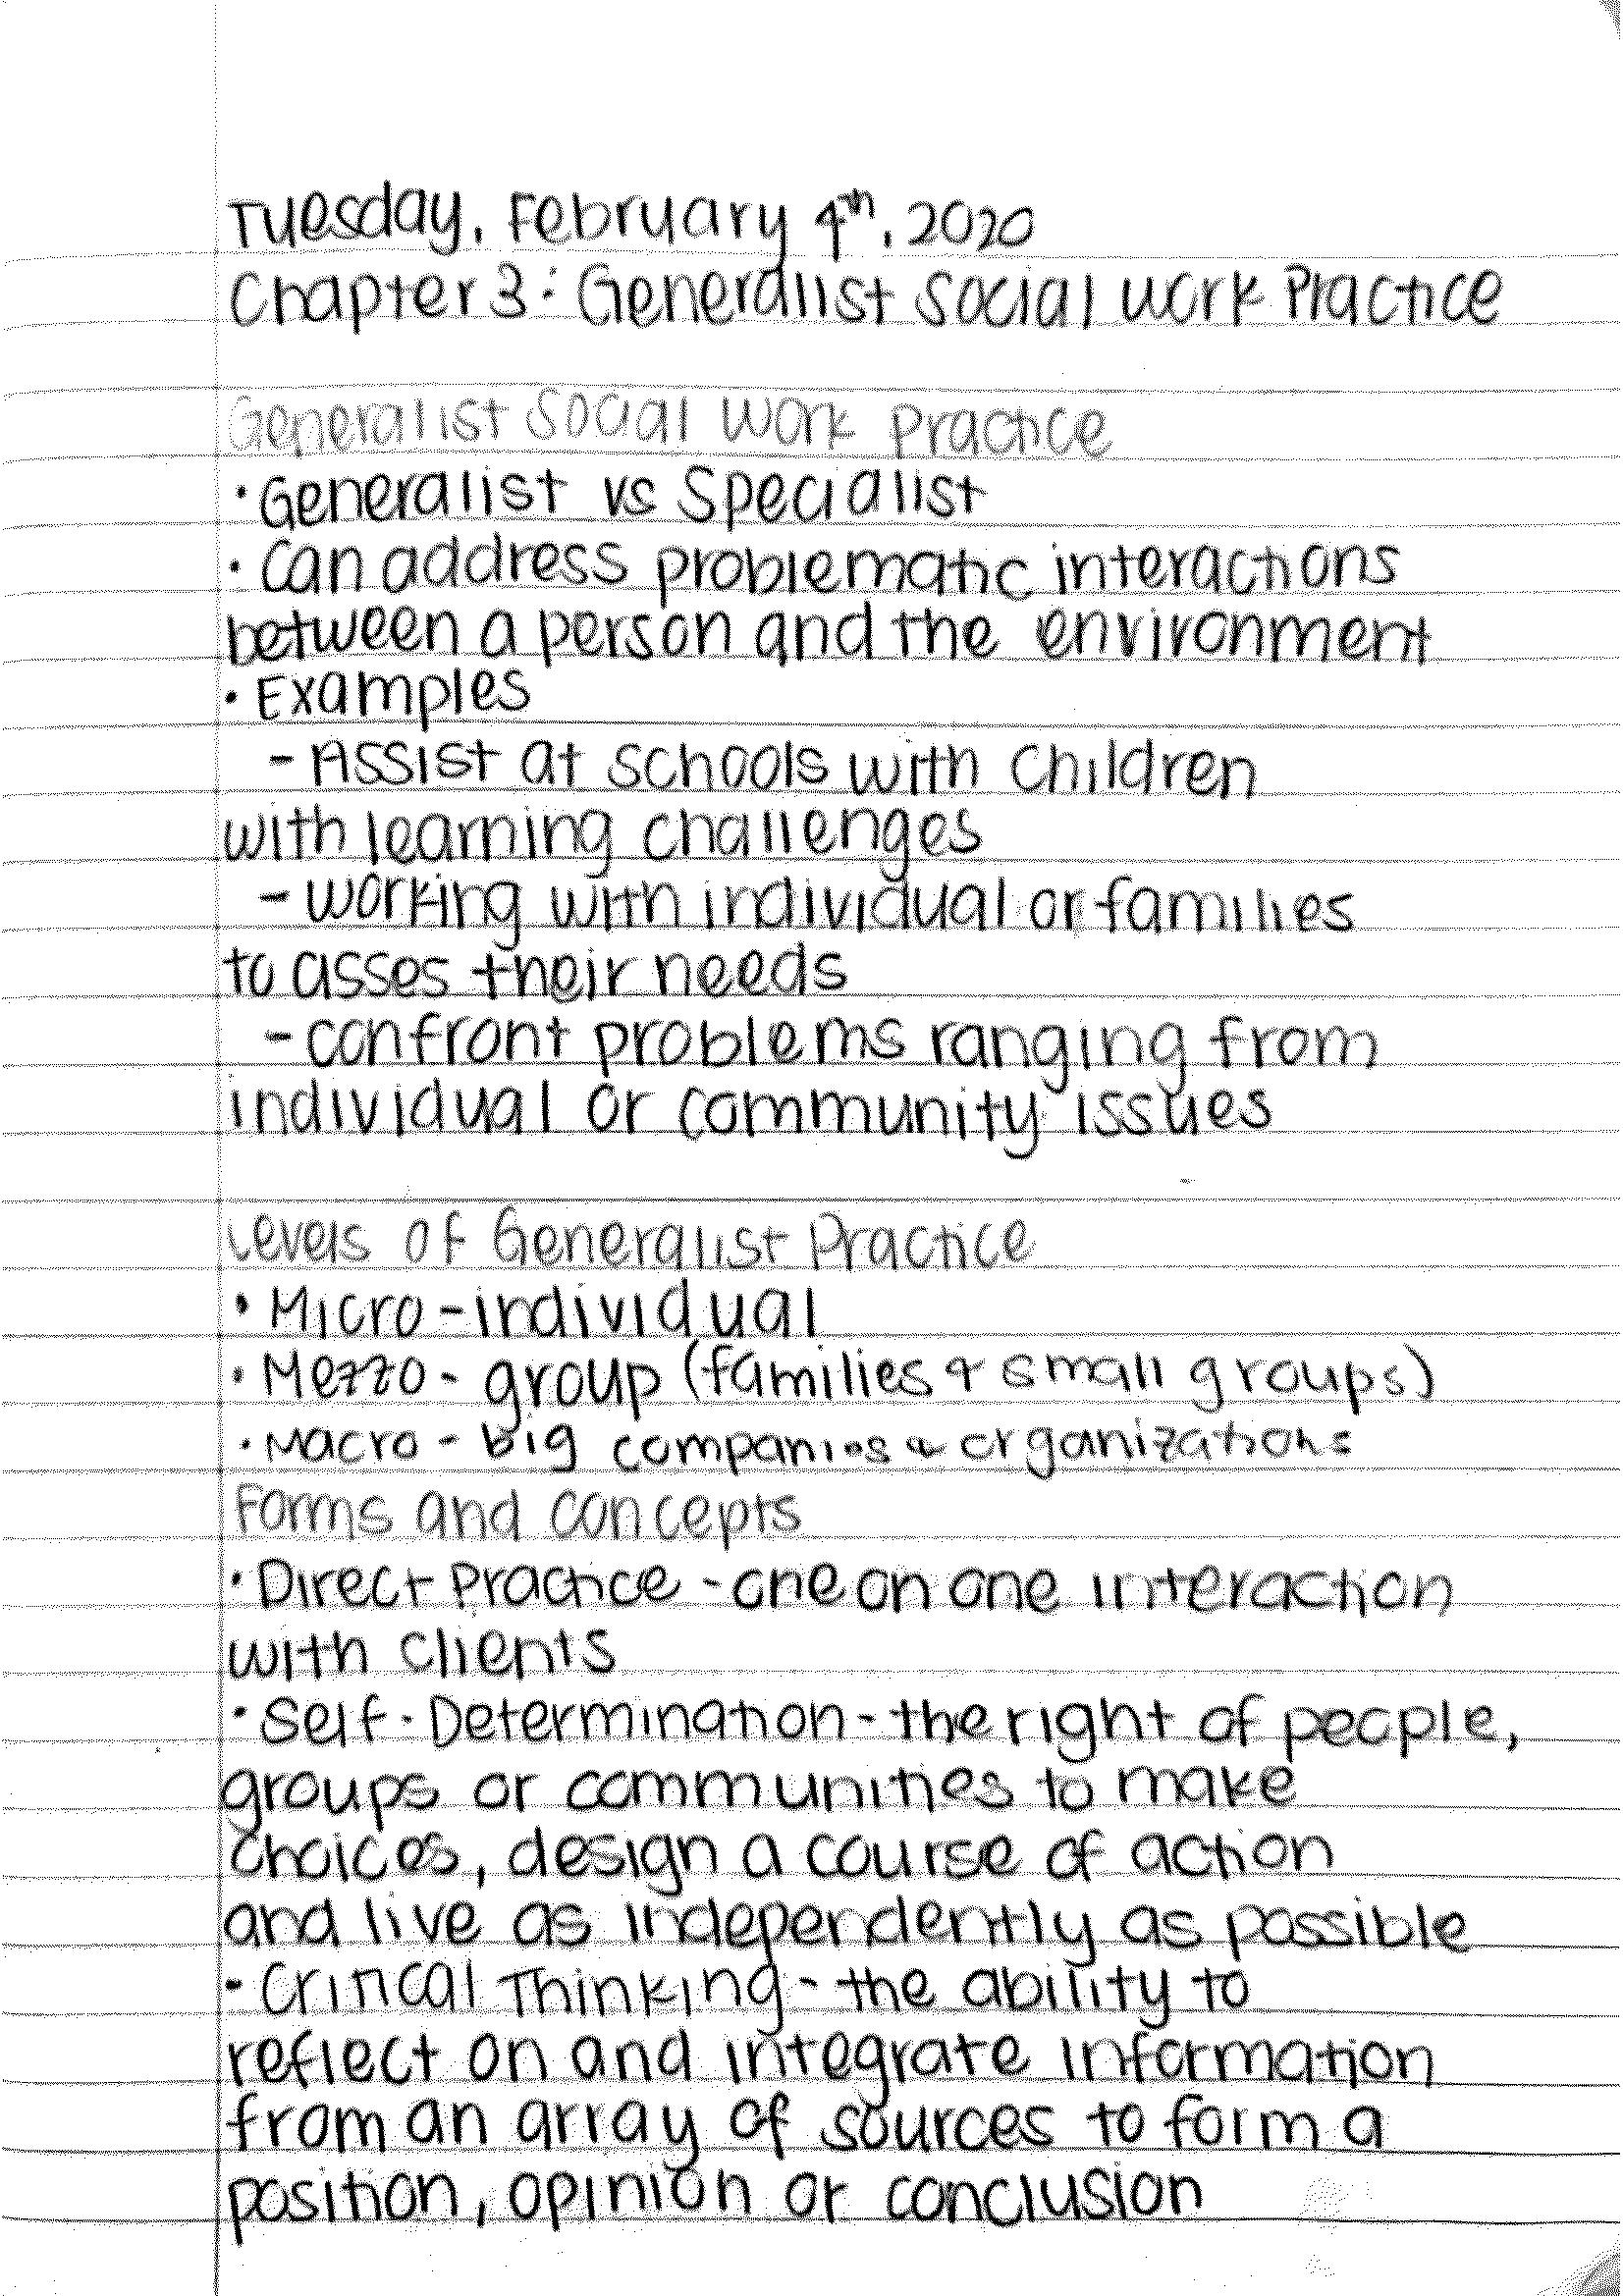 Tuesday, February 4th, 2020
Chapter 3: Generalist Social Work Practice
Generalist Social Work Practice
• Generalist vs Specialist
• Can address problematic interactions
between a person and the environment
• Examples
- Assist at schools with children
with learning challenges
- working with individual or families
to asses their needs
- confront problems ranging from
individual or community issues
Levels of Generalist Practice
• Micro - individual
• Mezzo - group (families & small groups)
• Macro - big companies & organizations
Forms and concepts
• Direct Practice - one on one interaction
with clients
• Self-Determination - the right of people,
groups or communities to make
choices, design a course of action
and live as independently as possible
• Critical Thinking - the ability to
reflect on and integrate information
from an array of sources to form a
position, opinion or conclusion